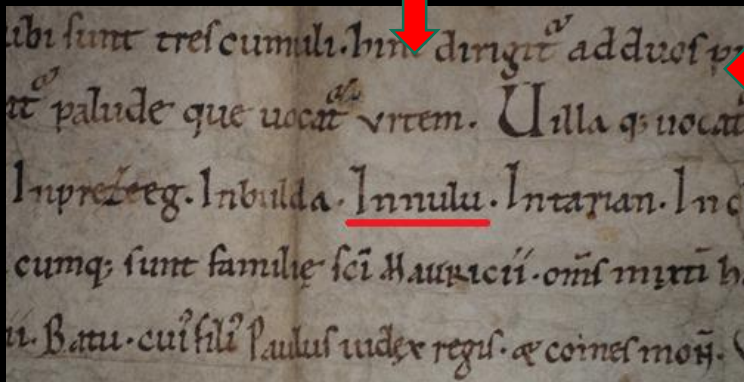 ubi sunt tres cumuli. hinc dirigit᷑ ad duos p
it᷑ palude que uocat᷑ vrtem. Uilla q; uocat
Inpreteeg. Inbulda. Innulu. Intarian. In c
cumq; sunt familię sc̄i Mauricii. om̄s mixti h
ii. Batu. cui᷒ fili᷒ Paulus iudex regis. æ comes moñ.